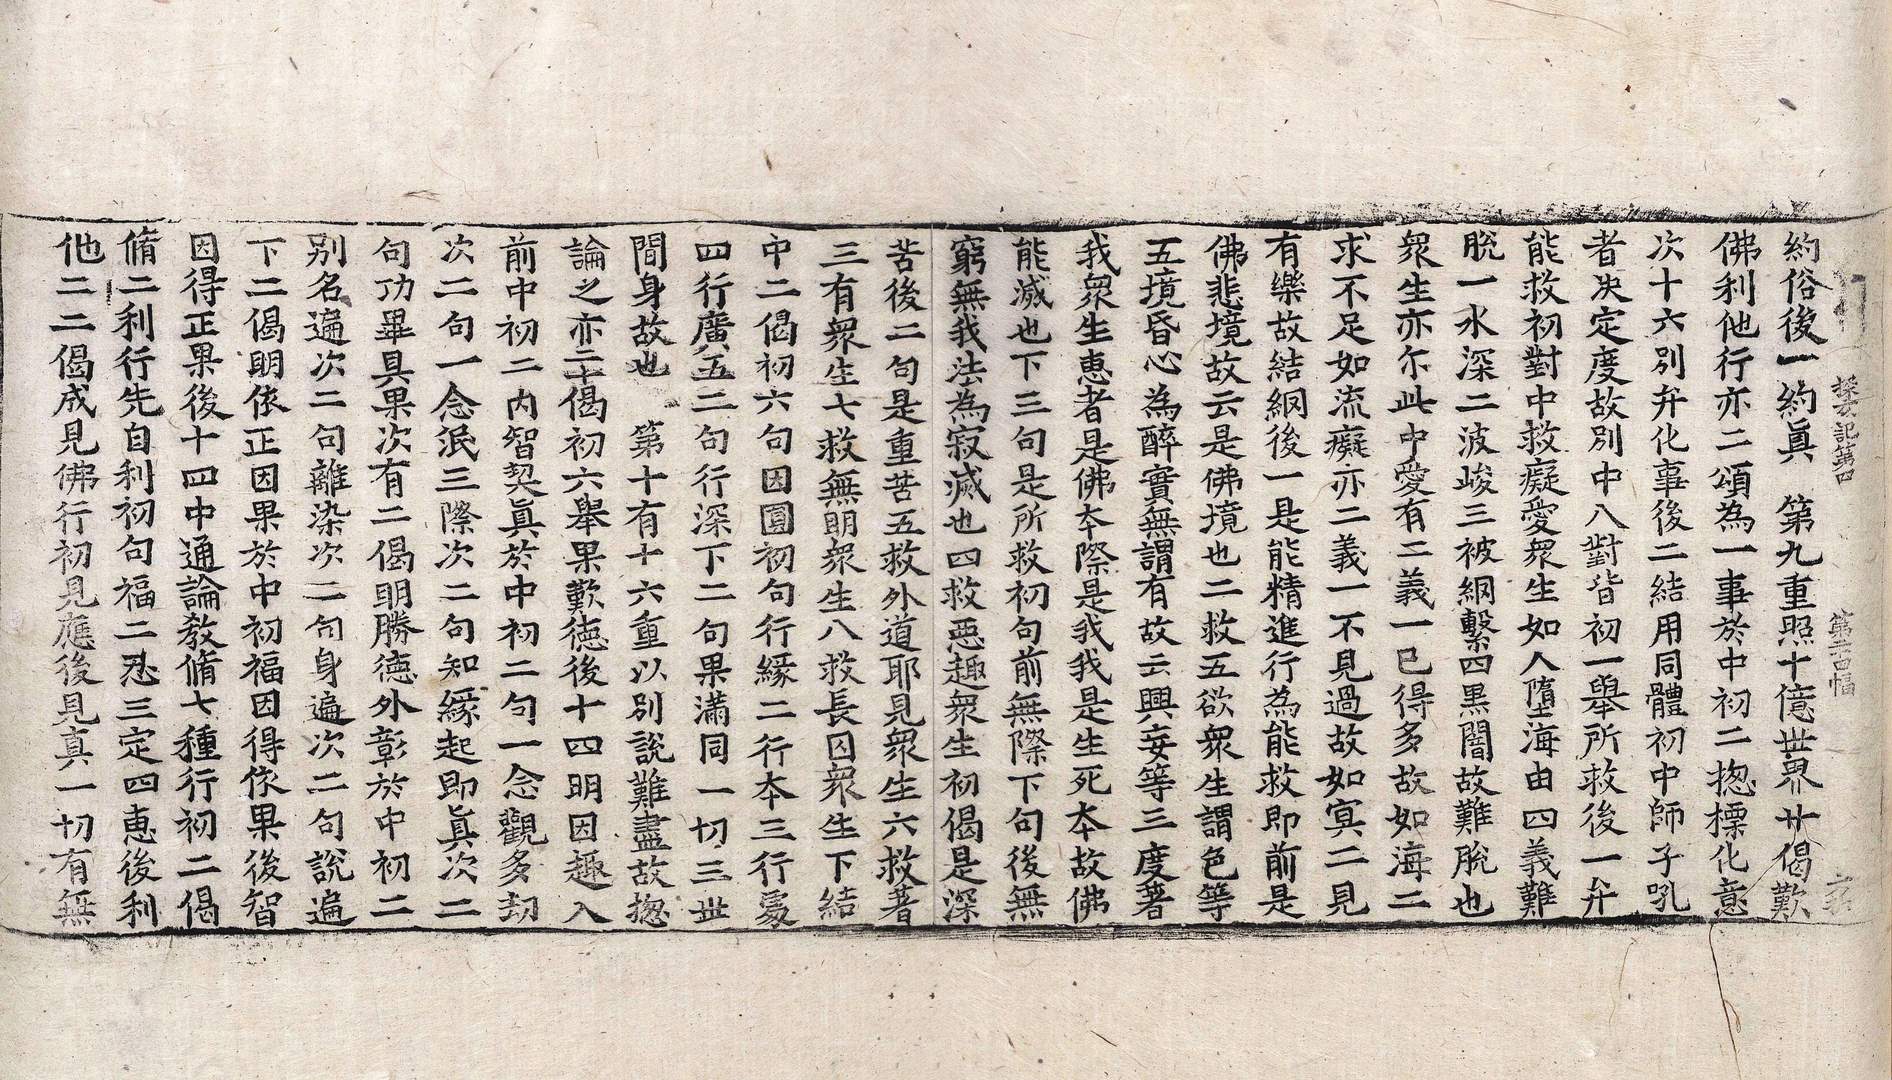 探玄記第四 第二十四幅
約俗後一約眞 第九重照十億世界廿偈歎
佛利他行亦二頌為一事於中初二揔摽化意
次十六別弁化事後二結用同體初中師子吼
者决定度故別中八對皆初一舉所救後一弁
能救初對中救癡愛衆生如人墮海由四義難
脫一水深二波峻三被綱繫四黒闇故難脫也
衆生亦尓此中愛有二義一已得多故如海二
求不足如流癡亦二義一不見過故如冥二見
有樂故結綱後一是能精進行為能救即前是
佛悲境故云是佛境也二救五欲衆生謂色等
五境昏心為醉實無謂有故云興妄等三度著
我衆生惠者是佛夲際是我我是生死夲故佛
能滅也下三句是所救初句前無際下句後無
窮無我法為寂滅也四救惡趣衆生初偈是深
苦後二句是重苦五救外道耶見衆生六救著
三有衆生七救無明衆生八救長囚衆生下結
中二偈初六句因圓初句行緣二行夲三行處
四行廣五二句行深下二句果滿同一切三世
間身故也 第十有十六重以別說難盡故揔
論之亦二十偈初六舉果歎德後十四明因趣入
前中初二內智契眞於中初二句一念觀多劫
次二句一念泯三際次二句知緣起即眞次二
句功畢具果次有二偈明勝德外彰於中初二
别名遍次二句離染次二句身遍次二句說遍
下二偈明依正因果於中初福因得依果後智
因得正果後十四中通論教脩七種行初二偈
脩二利行先自利初句福二忍三定四惠後利
他二二偈成見佛行初見應後見真一切有無